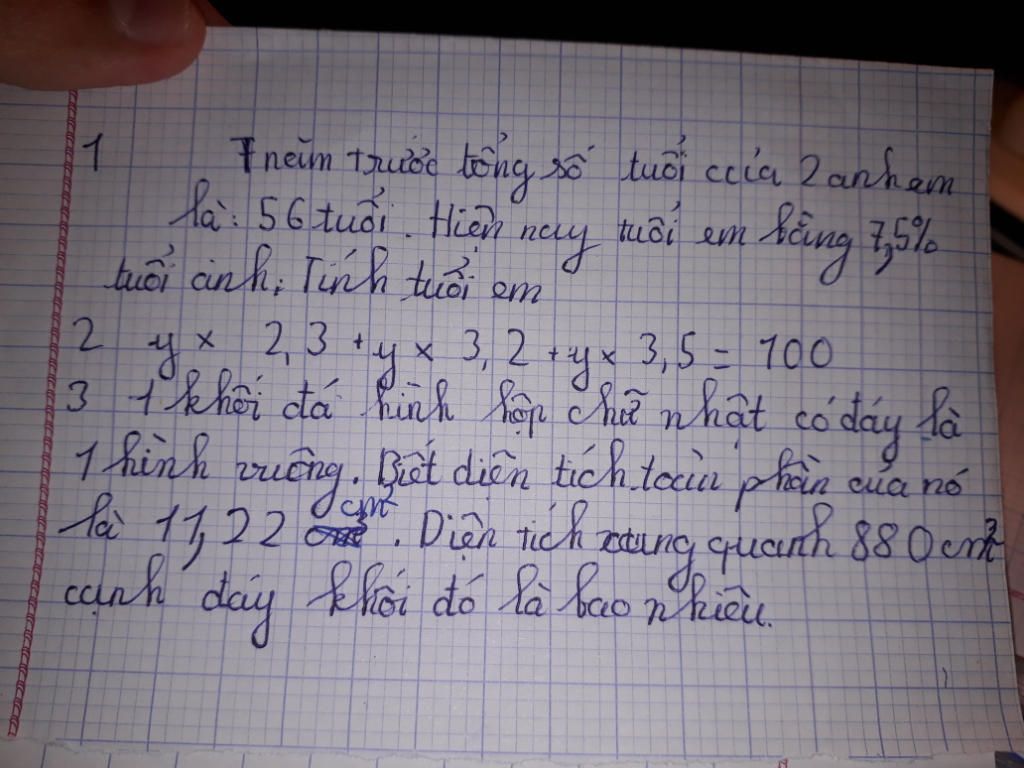 1 7 năm trước tổng số tuổi của 2 anh em
là: 56 tuổi. Hiện nay tuổi em bằng 7,5%
tuổi anh; Tính tuổi em
2 y × 2,3 + y × 3,2 + y × 3,5 = 100
3 1 khối đá hình hộp chữ nhật có đáy là
1 hình vuông. Biết diện tích toàn phần của nó
là 11,22 cm². Diện tích xung quanh 880cm²
cạnh đáy khối đó là bao nhiêu.